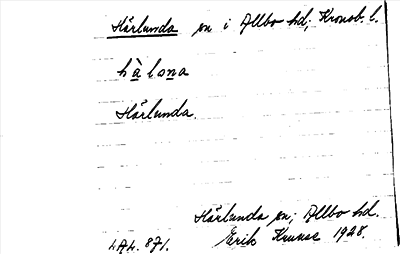 Härlunda sn i Allbo hd, Kronob. l.
hà lsna
Härlunda.
Härlunda sn; Allbo hd.
Erik Kruuse 1928.